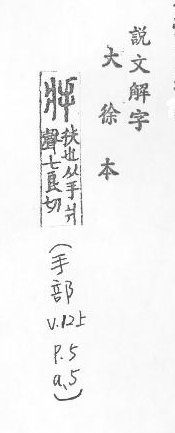 說文解字
大徐本
扶也从手爿
聲七良切
(手部
V.12上
P.5
a,5)